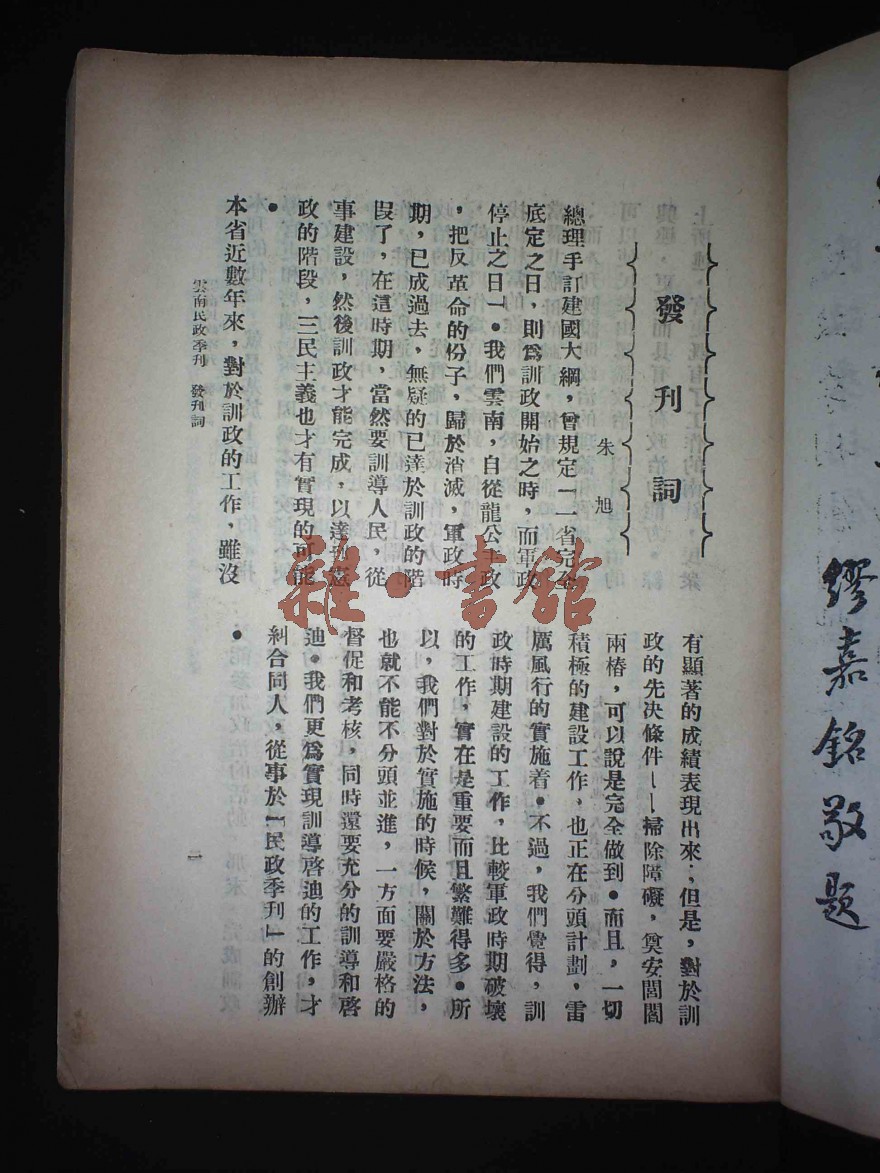 繆嘉銘敬題
發刊詞
朱旭
總理手訂建國大綱，曾規定「一省完全
底定之日，則爲訓政開始之時，而軍政
停止之日」。我們雲南，自從龍公主政
，把反革命的份子，歸於消滅，軍政時
期，已成過去，無疑的已達於訓政的階
段了，在這時期，當然要訓導人民，從
事建設，然後訓政才能完成，以達到憲
政的階段，三民主義也才有實現的可能
。
本省近數年來，對於訓政的工作，雖沒
有顯著的成績表現出來；但是，對於訓
政的先決條件——掃除障礙，奠安閭閻
兩樁，可以說是完全做到。而且，一切
積極的建設工作，也正在分頭計劃，雷
厲風行的實施着。不過，我們覺得，訓
政時期建設的工作，比較軍政時期破壞
的工作，實在是重要而且繁難得多。所
以，我們對於實施的時候，關於方法，
也就不能不分頭並進，一方面要嚴格的
督促和考核，同時還要充分的訓導和啓
迪。我們更爲實現訓導啓迪的工作，才
糾合同人，從事於「民政季刊」的創辦
。
雲南民政季刊　發刊詞
一
雜·書館